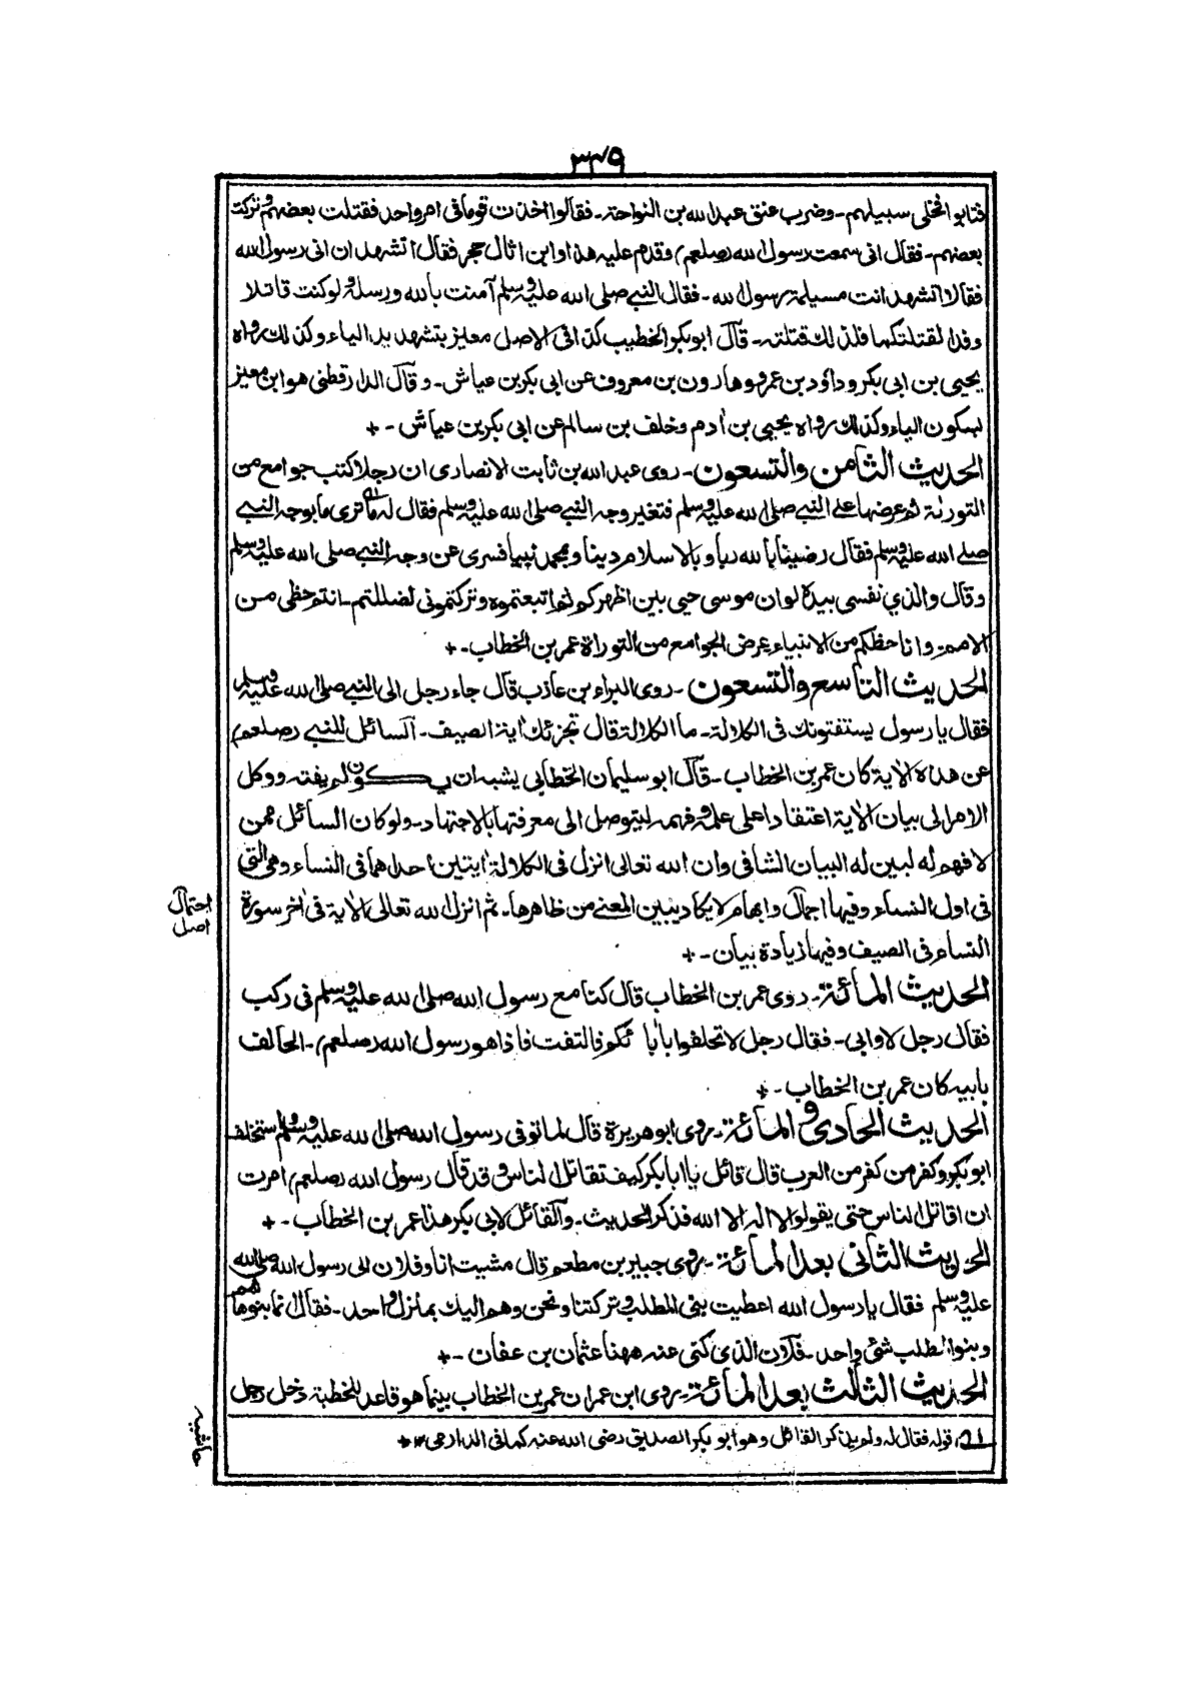 ٣٤٩
فتابوا فخلى سبيلهم۔ وضرب عنق عبدالله بن النواحة۔ فقالوا اخذت قوما فى امر واحد فقتلت بعضهم وتركت
بعضهم۔ فقال انى سمعت رسول الله (صلعم) وقدم عليه هذا وابن اثال حجر فقال اتشهد ان انى رسول الله
فقالا اتشهد انت مسيلمة رسول الله۔ فقال النبي صلى الله عليه وسلم آمنت بالله ورسله ولوكنت قاتلا
وفدا لقتلتكما فلذلك قتلته۔ قال ابوبكر الخطيب كذا فى الاصل معيز بتشهد يد الياء وكذلك رواه
يحيى بن ابى بكر وداؤد بن عمرو وهارون بن معروف عن ابى بكر بن عياش۔ وقال الدارقطنى هو ابن معيز
بسكون الياء وكذلك رواه يحيى بن اٰدم وخلف بن سالم عن ابى بكر بن عياش۔+
الحديث الثامن والتسعون۔ روى عبد الله بن ثابت الانصارى ان رجلا كتب جوامع من
التورٰىة ثم عرضها على النبي صلى الله عليه وسلم فتغير وجه النبي صلى الله عليه وسلم فقال له اما ترى ما بوجه النبي
صلى الله عليه وسلم فقال رضينا بالله ربا وبالاسلام دينا وبمحمد نبيا فسرى عن وجه النبي صلى الله عليه وسلم
وقال والذي نفسى بيده لوان موسى حيى بين اظهركم ثم اتبعتموه وتركتمونى لضللتم۔ انتم حظى من
الامم وانا حظكم من الانبياء عرض الجوامع من التوراة عمر بن الخطاب۔+
الحديث التاسع والتسعون۔ روى البراء بن عازب قال جاء رجل الى النبي صلى الله عليه وسلم
فقال يا رسول يستفتونك فى الكلالة۔ ما الكلالة قال تجزئك اٰية الصيف۔ السائل للنبي (صلعم)
عن هذه الاٰية كان عمر بن الخطاب۔ قال ابو سليمان الخطابى يشبه ان يكون لم يفته ووكل
الامر الى بيان الاٰية اعتقادا على علمه وفهمه ليتوصل الى معرفتها بالاجتهاد۔ ولوكان السائل ممن
لا فهم له لبين له البيان الشافى وان الله تعالى انزل فى الكلالة اٰيتين احداهما فى النساء وهى التى
فى اول النساء وفيها اجمال وابهام لا يكاد يبين المعنى من ظاهرها۔ ثم انزل الله تعالى الاٰية فى اٰخر سورة
احتمال
اصل
النساء فى الصيف وفيها زيادة بيان۔+
الحديث المائة۔ روى عمر بن الخطاب قال كنا مع رسول الله صلى الله عليه وسلم فى ركب
فقال رجل لا وابى۔ فقال رجل لا تحلفوا باٰبائكم فالتفت فاذا هو رسول الله (صلعم)۔ الحالف
بابيه كان عمر بن الخطاب۔+
الحديث الحادى والمائة۔ روى ابو هريرة قال لما توفى رسول الله صلى الله عليه وسلم واستخلف
ابوبكر وكفر من كفر من العرب قال قائل يا ابا بكر كيف تقاتل الناس وقد قال رسول الله (صلعم) امرت
ان اقاتل الناس حتى يقولوا لا اله الا الله فذكر الحديث۔ والقائل لابى بكر هذا عمر بن الخطاب۔+
الحديث الثانى بعد المائة۔ روى جبير بن مطعم قال مشيت انا وفلان الى رسول الله صلى الله
عليه وسلم فقال يا رسول الله اعطيت بنى المطلب وتركتنا ونحن وهم اليك بمنزل واحد۔ فقال انما بنو هاشم
وبنو المطلب شئ واحد۔ فلان الذى كنى عنه ههنا عثمان بن عفان۔+
الحديث الثالث بعد المائة۔ روى ابن عمر ان عمر بن الخطاب بينما هو قاعد للخطبة دخل رجل
حاشيه
قوله فقال له ولم يذكر القائل وهو ابو بكر الصديق رضى الله عنه كما فى الدارمى ١٢+